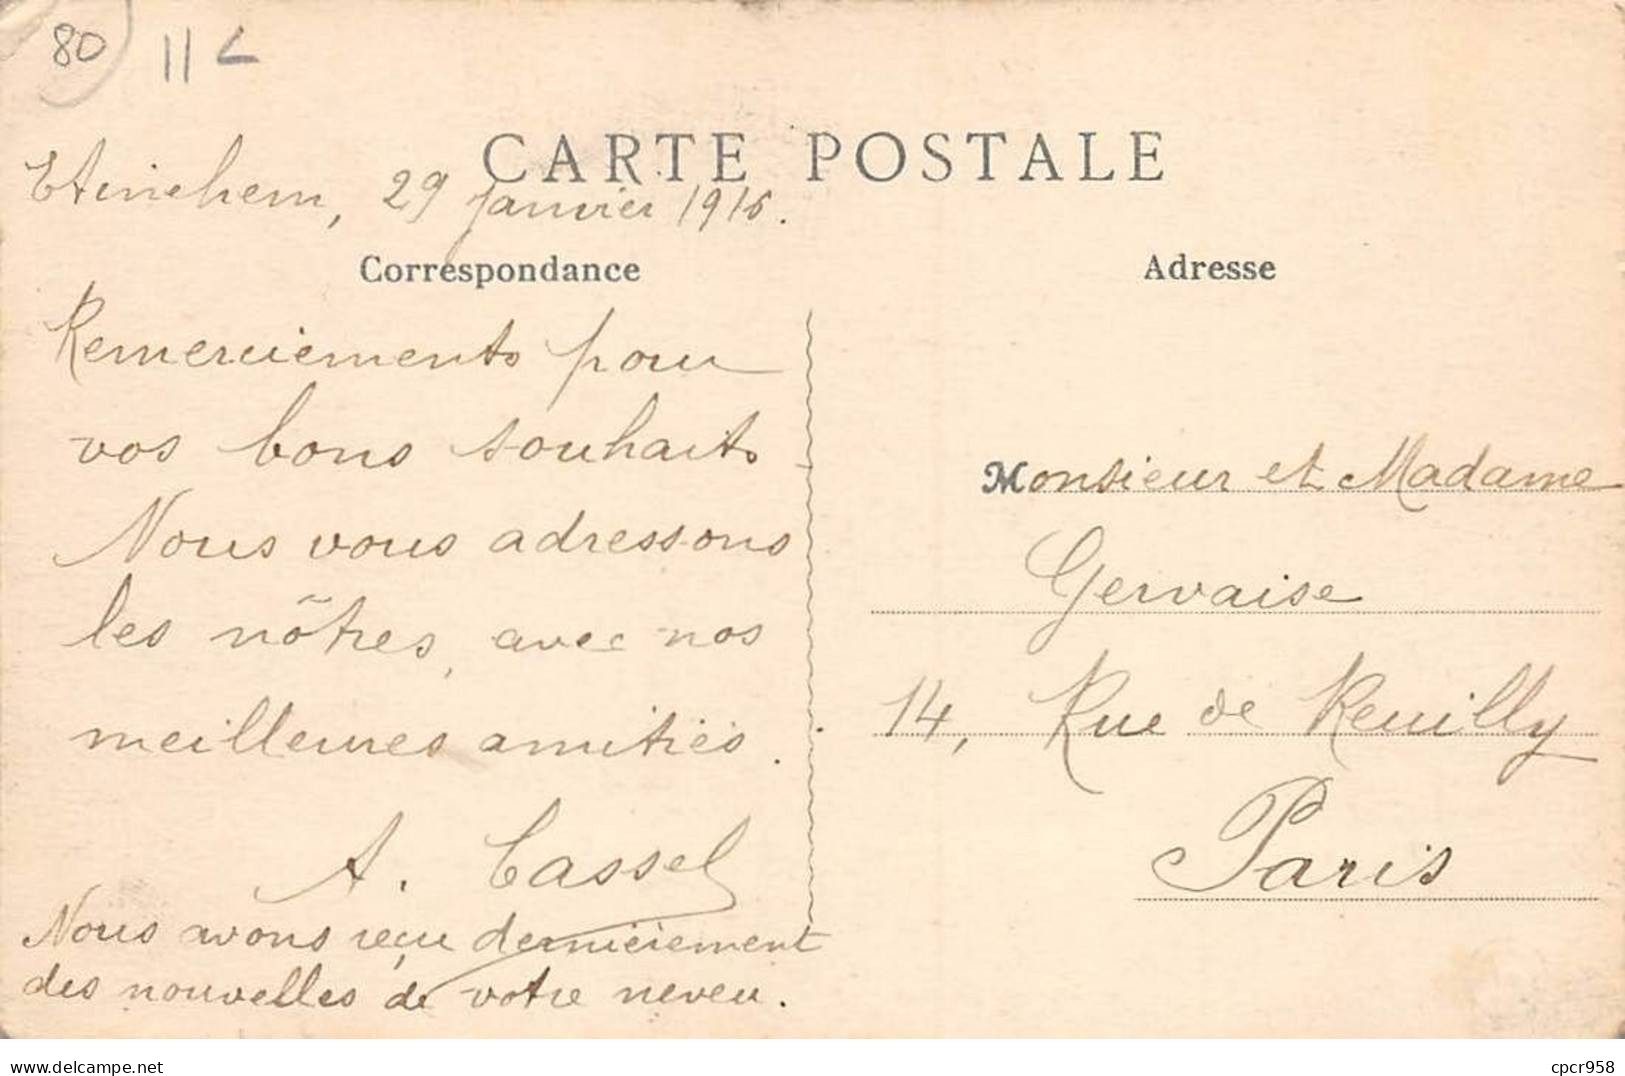 80 11 L
CARTE POSTALE
Etinehem, 29 janvier 1916.
Correspondance
Remerciements pour
vos bons souhaits.
Nous vous adressons
les nôtres, avec nos
meilleures amitiés.
A. Cassel
Nous avons reçu dernièrement
des nouvelles de votre neveu.
Adresse
Monsieur et Madame
Gervaise
14, Rue de Reuilly
Paris
delcampe.net
cpcr958